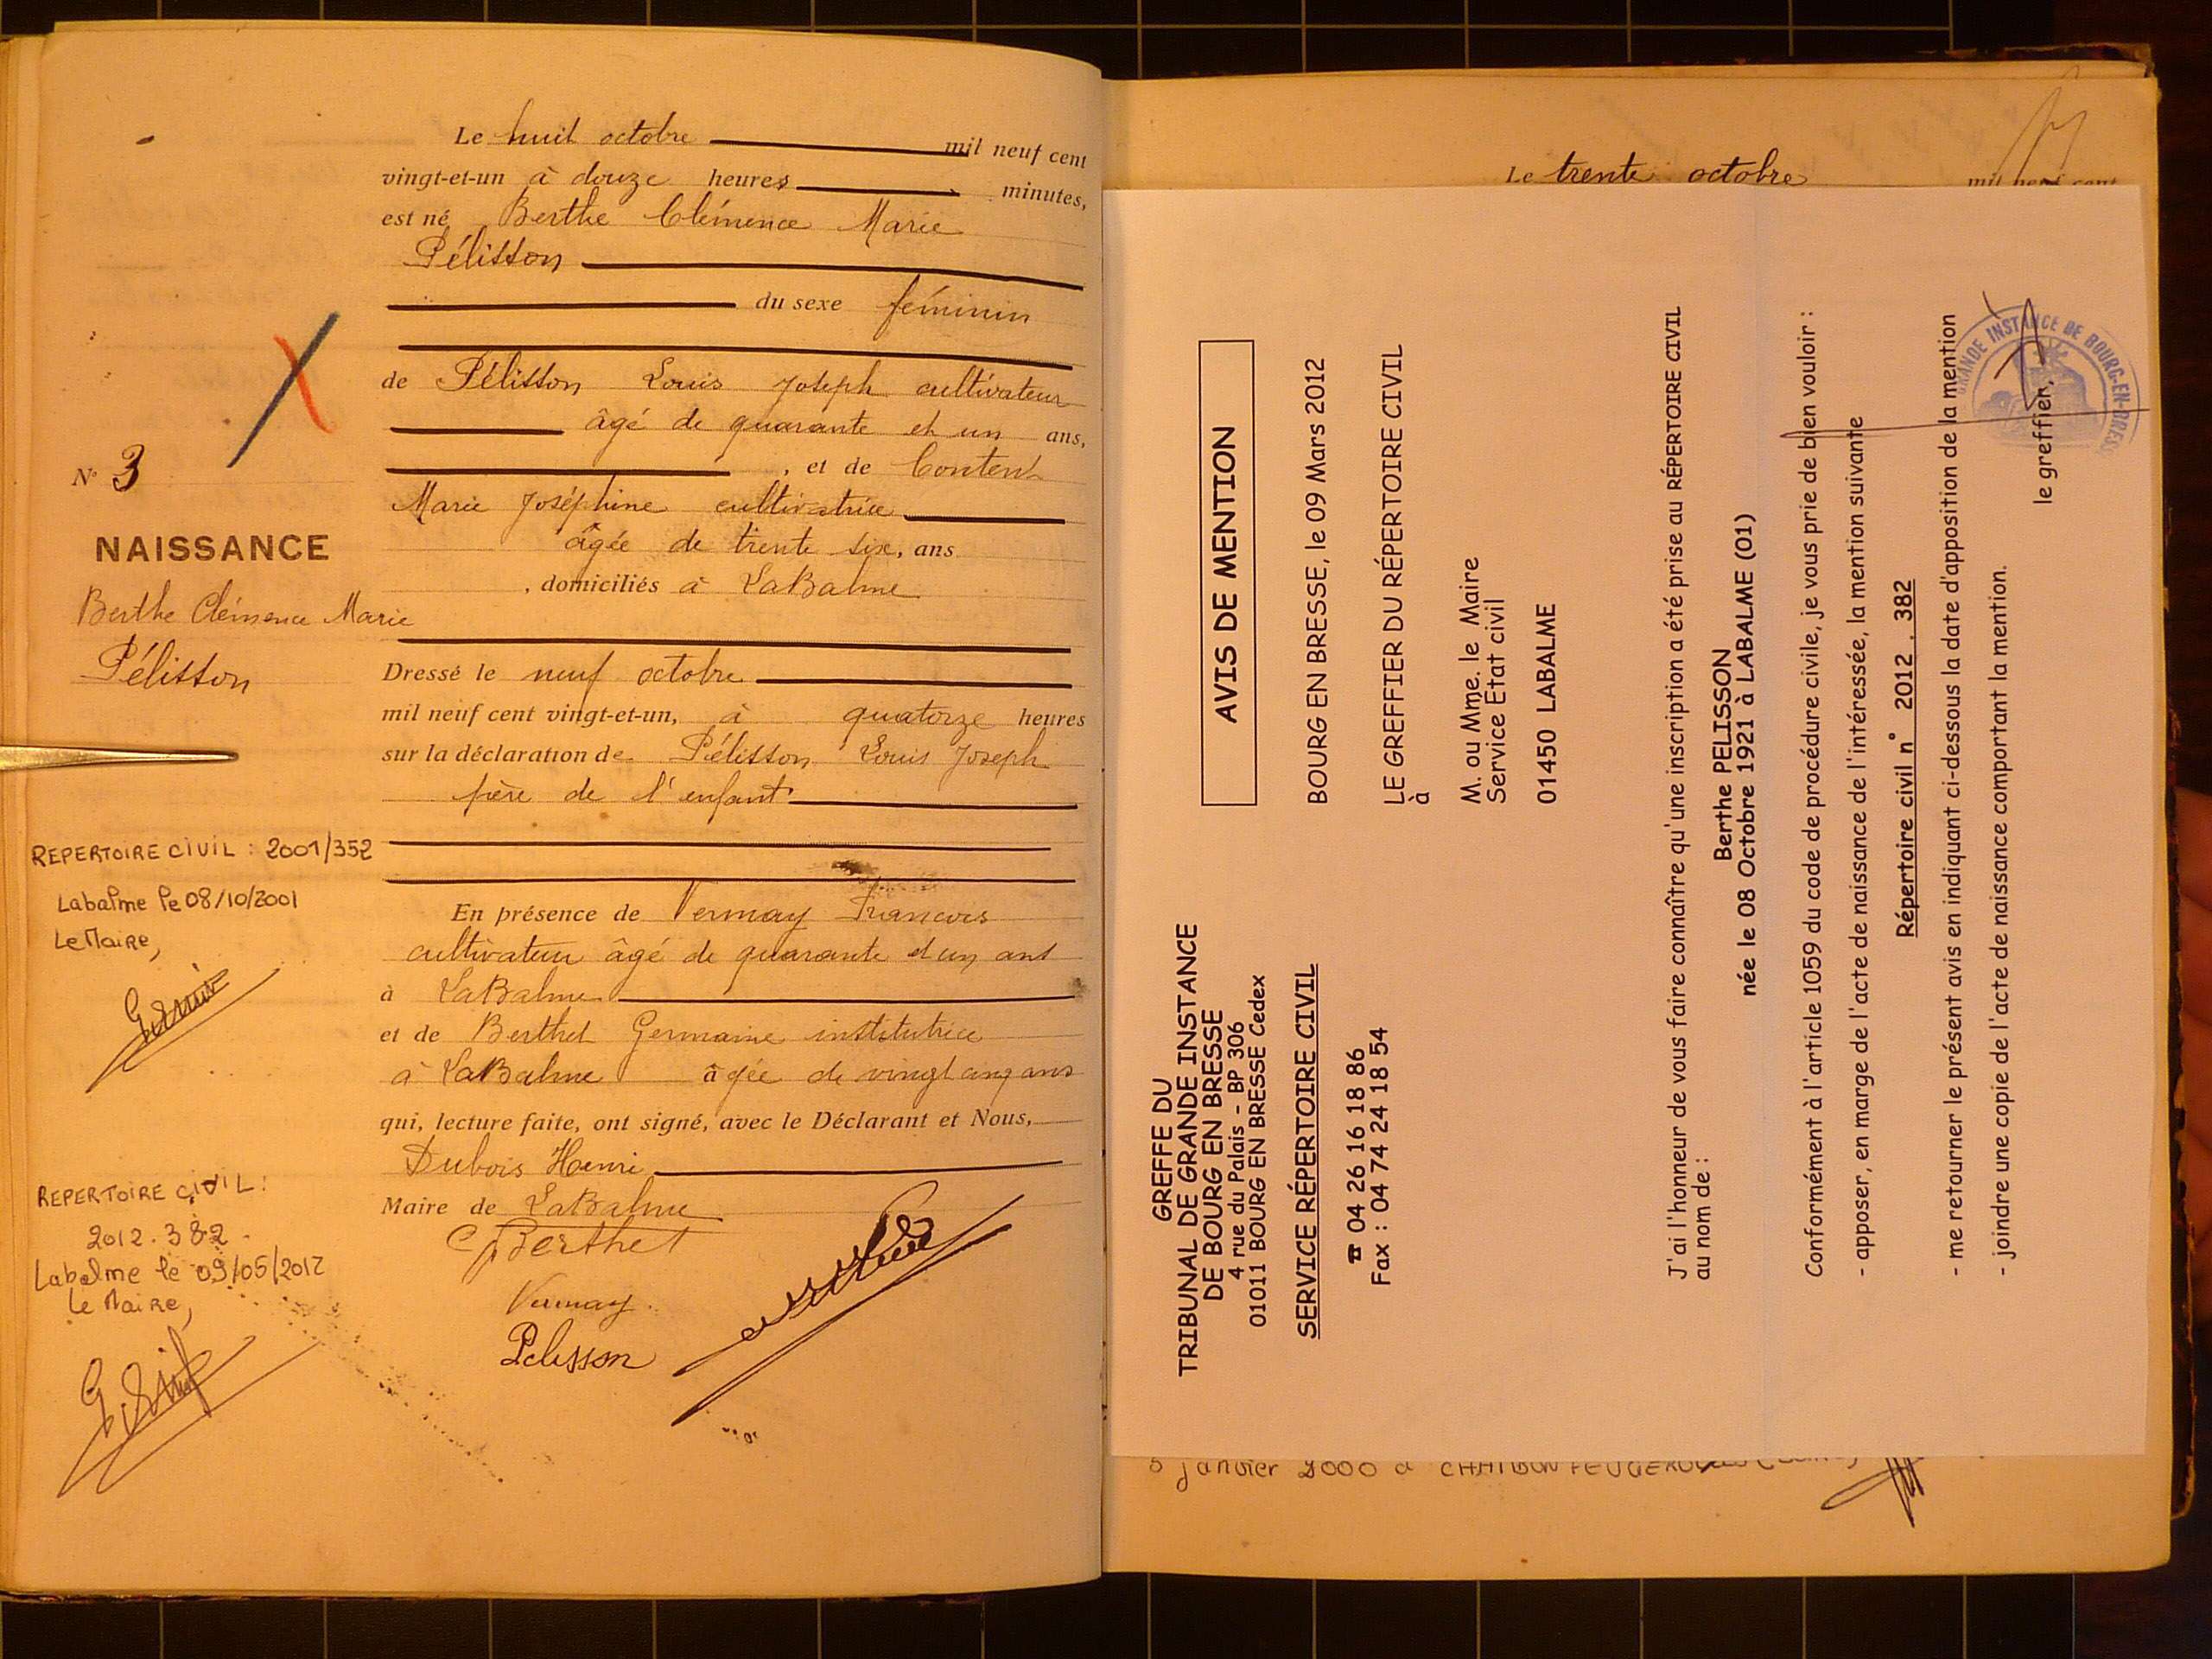 Le huit octobre mil neuf cent
vingt-et-un à douze heures minutes,
est né Berthe Clémence Marie
Pélisson
du sexe féminin
de Pélisson Louis Joseph cultivateur
âgé de quarante et un ans,
, et de Content
Marie Joséphine cultivatrice
âgée de trente six, ans
, domiciliés à LaBalme
Dressé le neuf octobre
mil neuf cent vingt-et-un, à quatorze heures
sur la déclaration de Pélisson Louis Joseph
père de l'enfant
En présence de Vernay Francois
cultivateur âgé de quarante et un ans
à LaBalme
et de Berthet Germaine institutrice
à LaBalme âgée de vingt cinq ans
qui, lecture faite, ont signé, avec le Déclarant et Nous,
Dubois Henri
Maire de LaBalme
G Berthet
Vernay
Pelisson
N° 3
NAISSANCE
Berthe Clémence Marie
Pélisson
REPERTOIRE CIVIL : 2001/352
Labalme le 08/10/2001
Le Maire,
REPERTOIRE CIVIL :
2012.382
Labalme le 09/05/2012
Le Maire,
Le trente octobre mil neuf cent
GREFFE DU
TRIBUNAL DE GRANDE INSTANCE
DE BOURG EN BRESSE
4 rue du Palais - BP 306
01011 BOURG EN BRESSE Cedex
SERVICE RÉPERTOIRE CIVIL
☎ 04 26 16 18 86
Fax : 04 74 24 18 54
AVIS DE MENTION
BOURG EN BRESSE, le 09 Mars 2012
LE GREFFIER DU RÉPERTOIRE CIVIL
à
M. ou Mme. le Maire
Service Etat civil
01450 LABALME
J'ai l'honneur de vous faire connaître qu'une inscription a été prise au RÉPERTOIRE CIVIL
au nom de :
Berthe PELISSON
née le 08 Octobre 1921 à LABALME (01)
Conformément à l'article 1059 du code de procédure civile, je vous prie de bien vouloir :
- apposer, en marge de l'acte de naissance de l'intéressée, la mention suivante
Répertoire civil n° 2012 . 382
- me retourner le présent avis en indiquant ci-dessous la date d'apposition de la mention
- joindre une copie de l'acte de naissance comportant la mention.
le greffier,
GRANDE INSTANCE DE BOURG-EN-BRESSE
janvier 2000 à